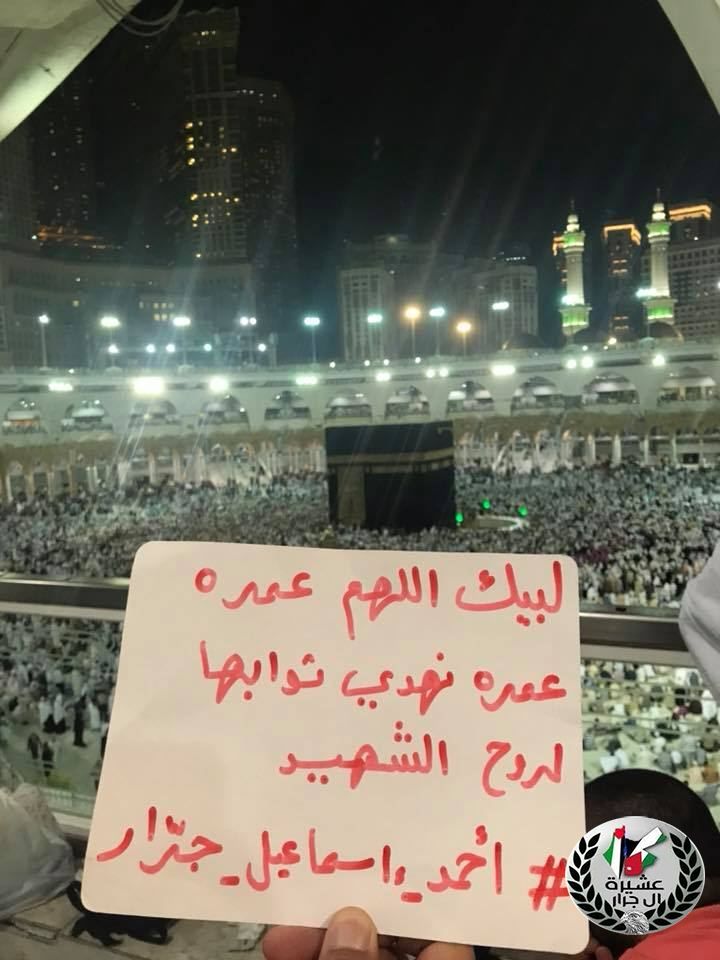 لبيك اللهم عمره
عمره نهدي ثوابها
لروح الشهيد
# أحمد_إسماعيل_جرّار
عشيرة
آل جرار